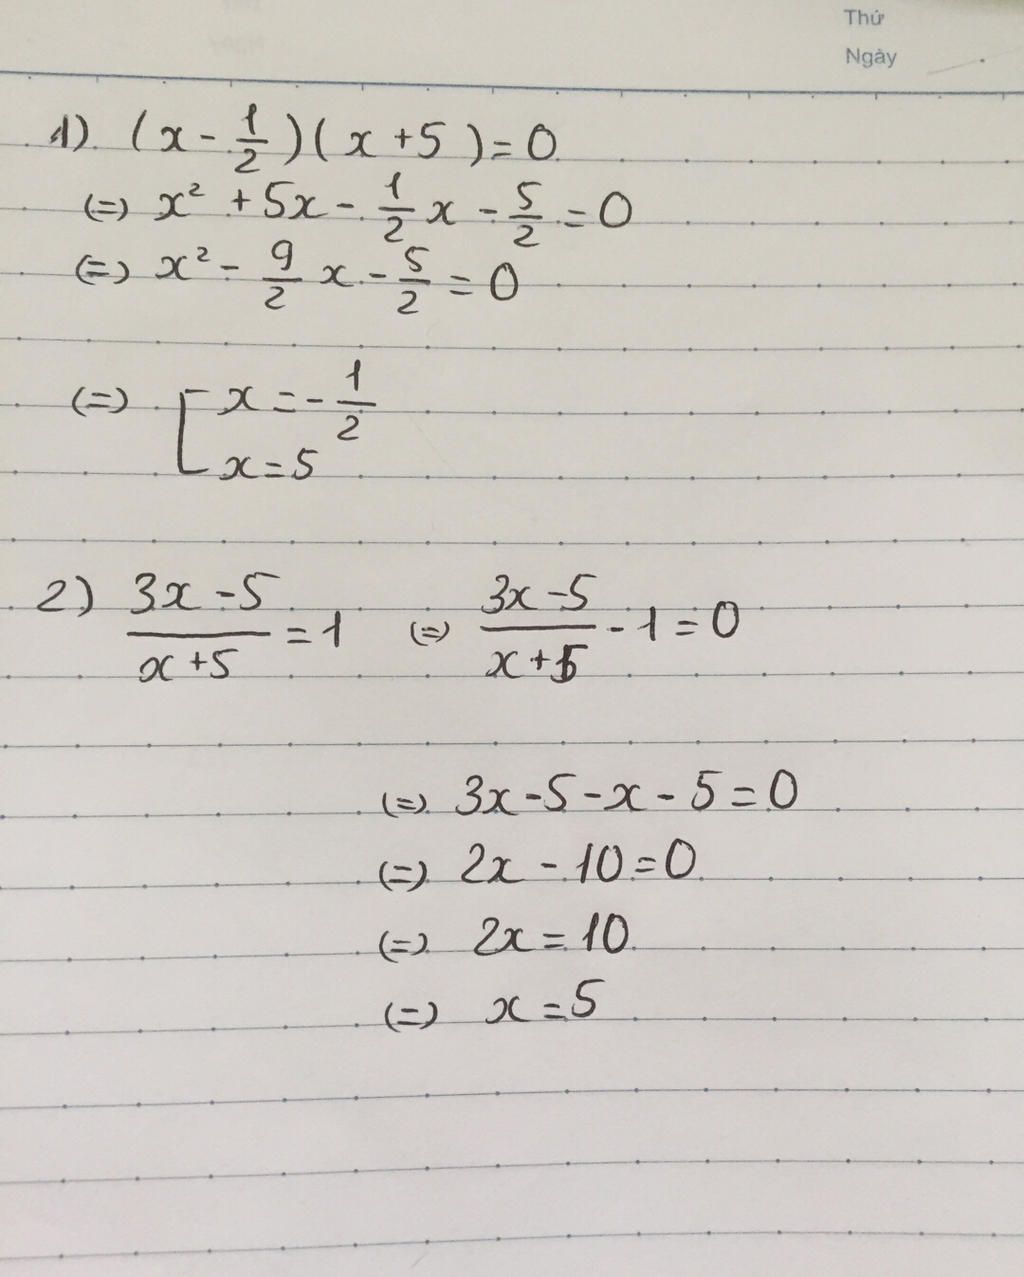 Thứ
Ngày
1) (x - 1/2)(x + 5) = 0
(=) x² + 5x - 1/2 x - 5/2 = 0
(=) x² - 9/2 x - 5/2 = 0
(=) [ x = - 1/2
x = 5
2) (3x - 5)/(x + 5) = 1 (=) (3x - 5)/(x + 5) - 1 = 0
(=) 3x - 5 - x - 5 = 0
(=) 2x - 10 = 0
(=) 2x = 10
(=) x = 5